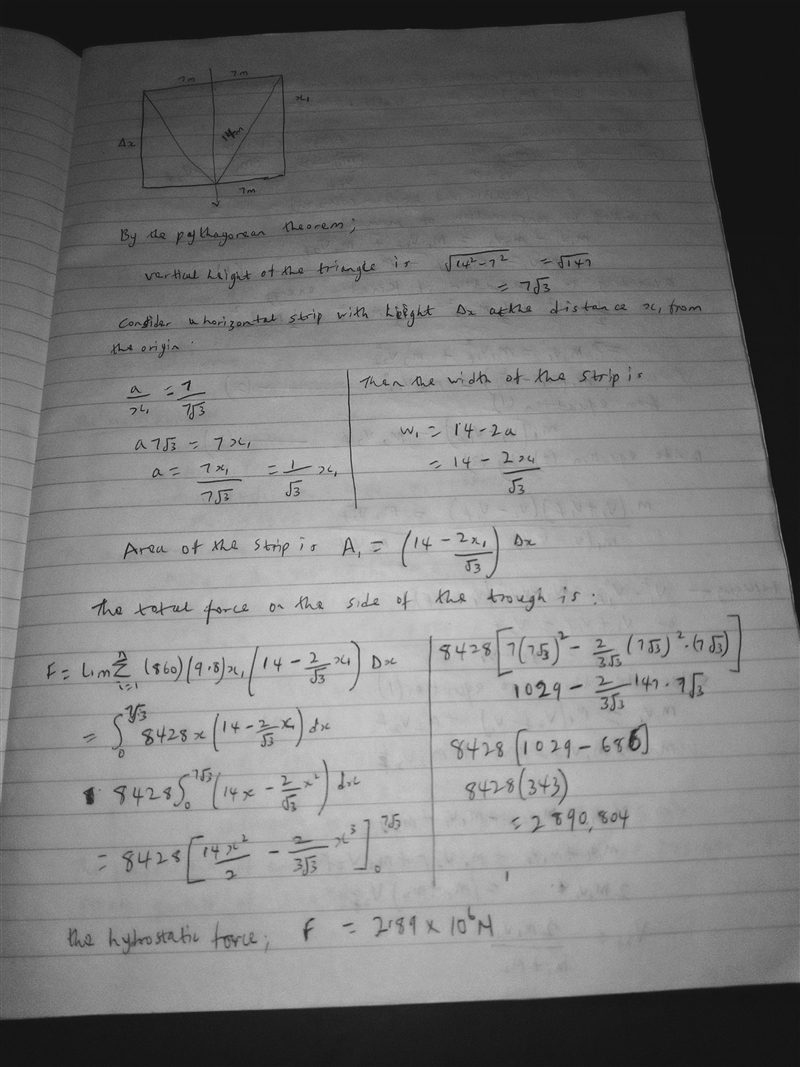 7m 7m
x₁
Δx
14m
7m
By the pythagorean theorem;
vertical height of the triangle is √(14² - 7²) = √147
= 7√3
Consider a horizontal strip with height Δx at the distance x₁ from
the origin.
a/x₁ = 7/7√3
a7√3 = 7x₁
a = 7x₁/7√3 = 1/√3 x₁
Then the width of the strip is
w₁ = 14 - 2a
= 14 - 2x₁/√3
Area of the strip is A₁ = (14 - 2x₁/√3) Δx
The total force on the side of the trough is:
F = Lim n Σ i=1 (860)(9.8)x₁(14 - 2/√3 x₁) Δx
= ∫₀^7√3 8428x(14 - 2/√3 x) dx
8428 ∫₀^7√3 (14x - 2/√3 x²) dx
= 8428[14x²/2 - 2/3√3 x³]₀^7√3
8428[7(7√3)² - 2/3√3 (7√3)²·(7√3)]
1029 - 2/3√3 147·7√3
8428[1029 - 686]
8428(343)
= 2890,804
the hybrostatic force; F = 2.89 × 10⁶ N